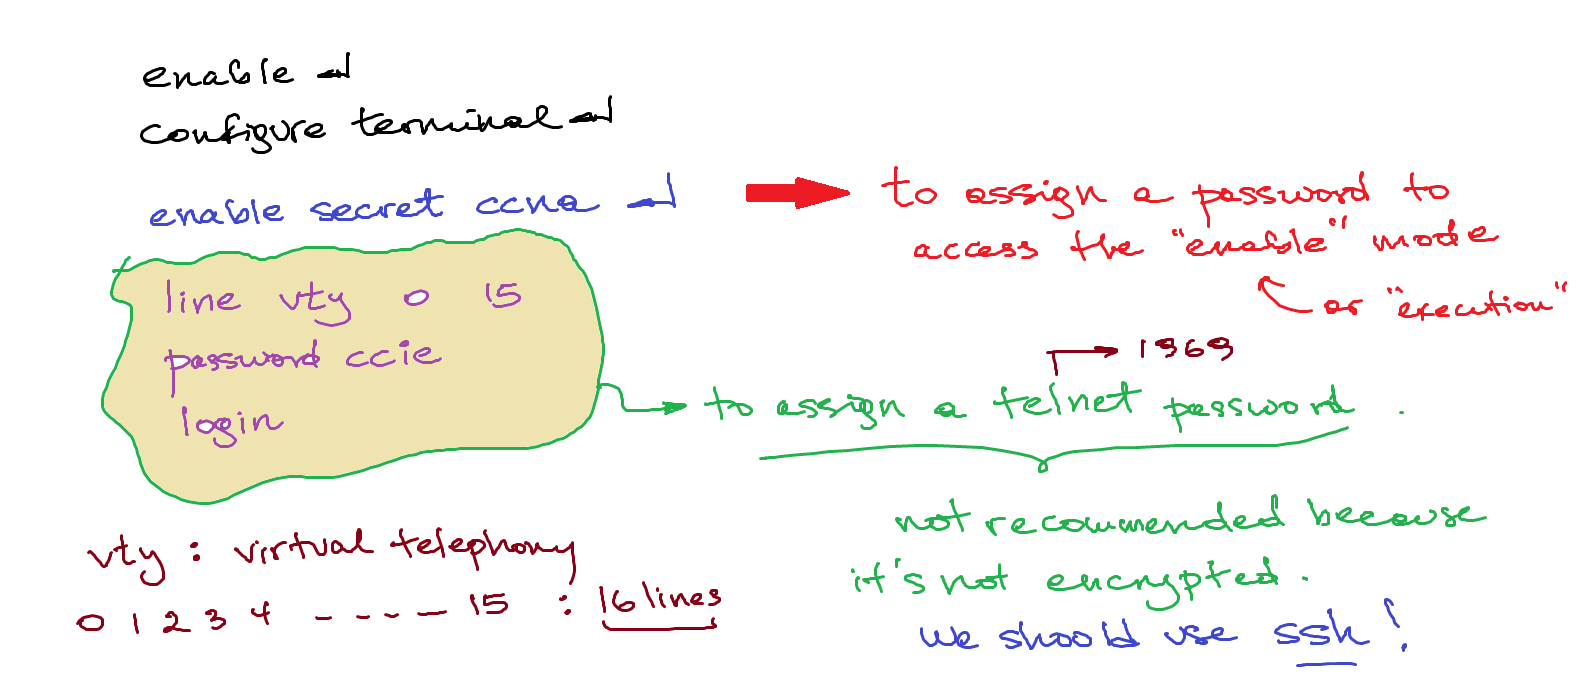 enable ↵
configure terminal ↵
enable secret ccna ↵
to assign a password to
access the "enable" mode
or "execution"
line vty 0 15
password ccie
login
1969
to assign a telnet password.
not recommended because
it's not encrypted.
we should use ssh!
vty : virtual telephony
0 1 2 3 4 ----- 15 : 16 lines